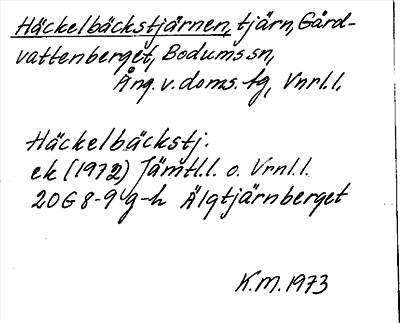 Häckelbäckstjärnen, tjärn, Gård-
vattenberget, Bodums sn,
Ång. v. doms. tg, Vnrl. l.
Häckelbäckstj.
ek (1972) Jämtl. l. o. Vrnl. l.
20G 8-9 g-h Älgtjärnberget
K.M. 1973